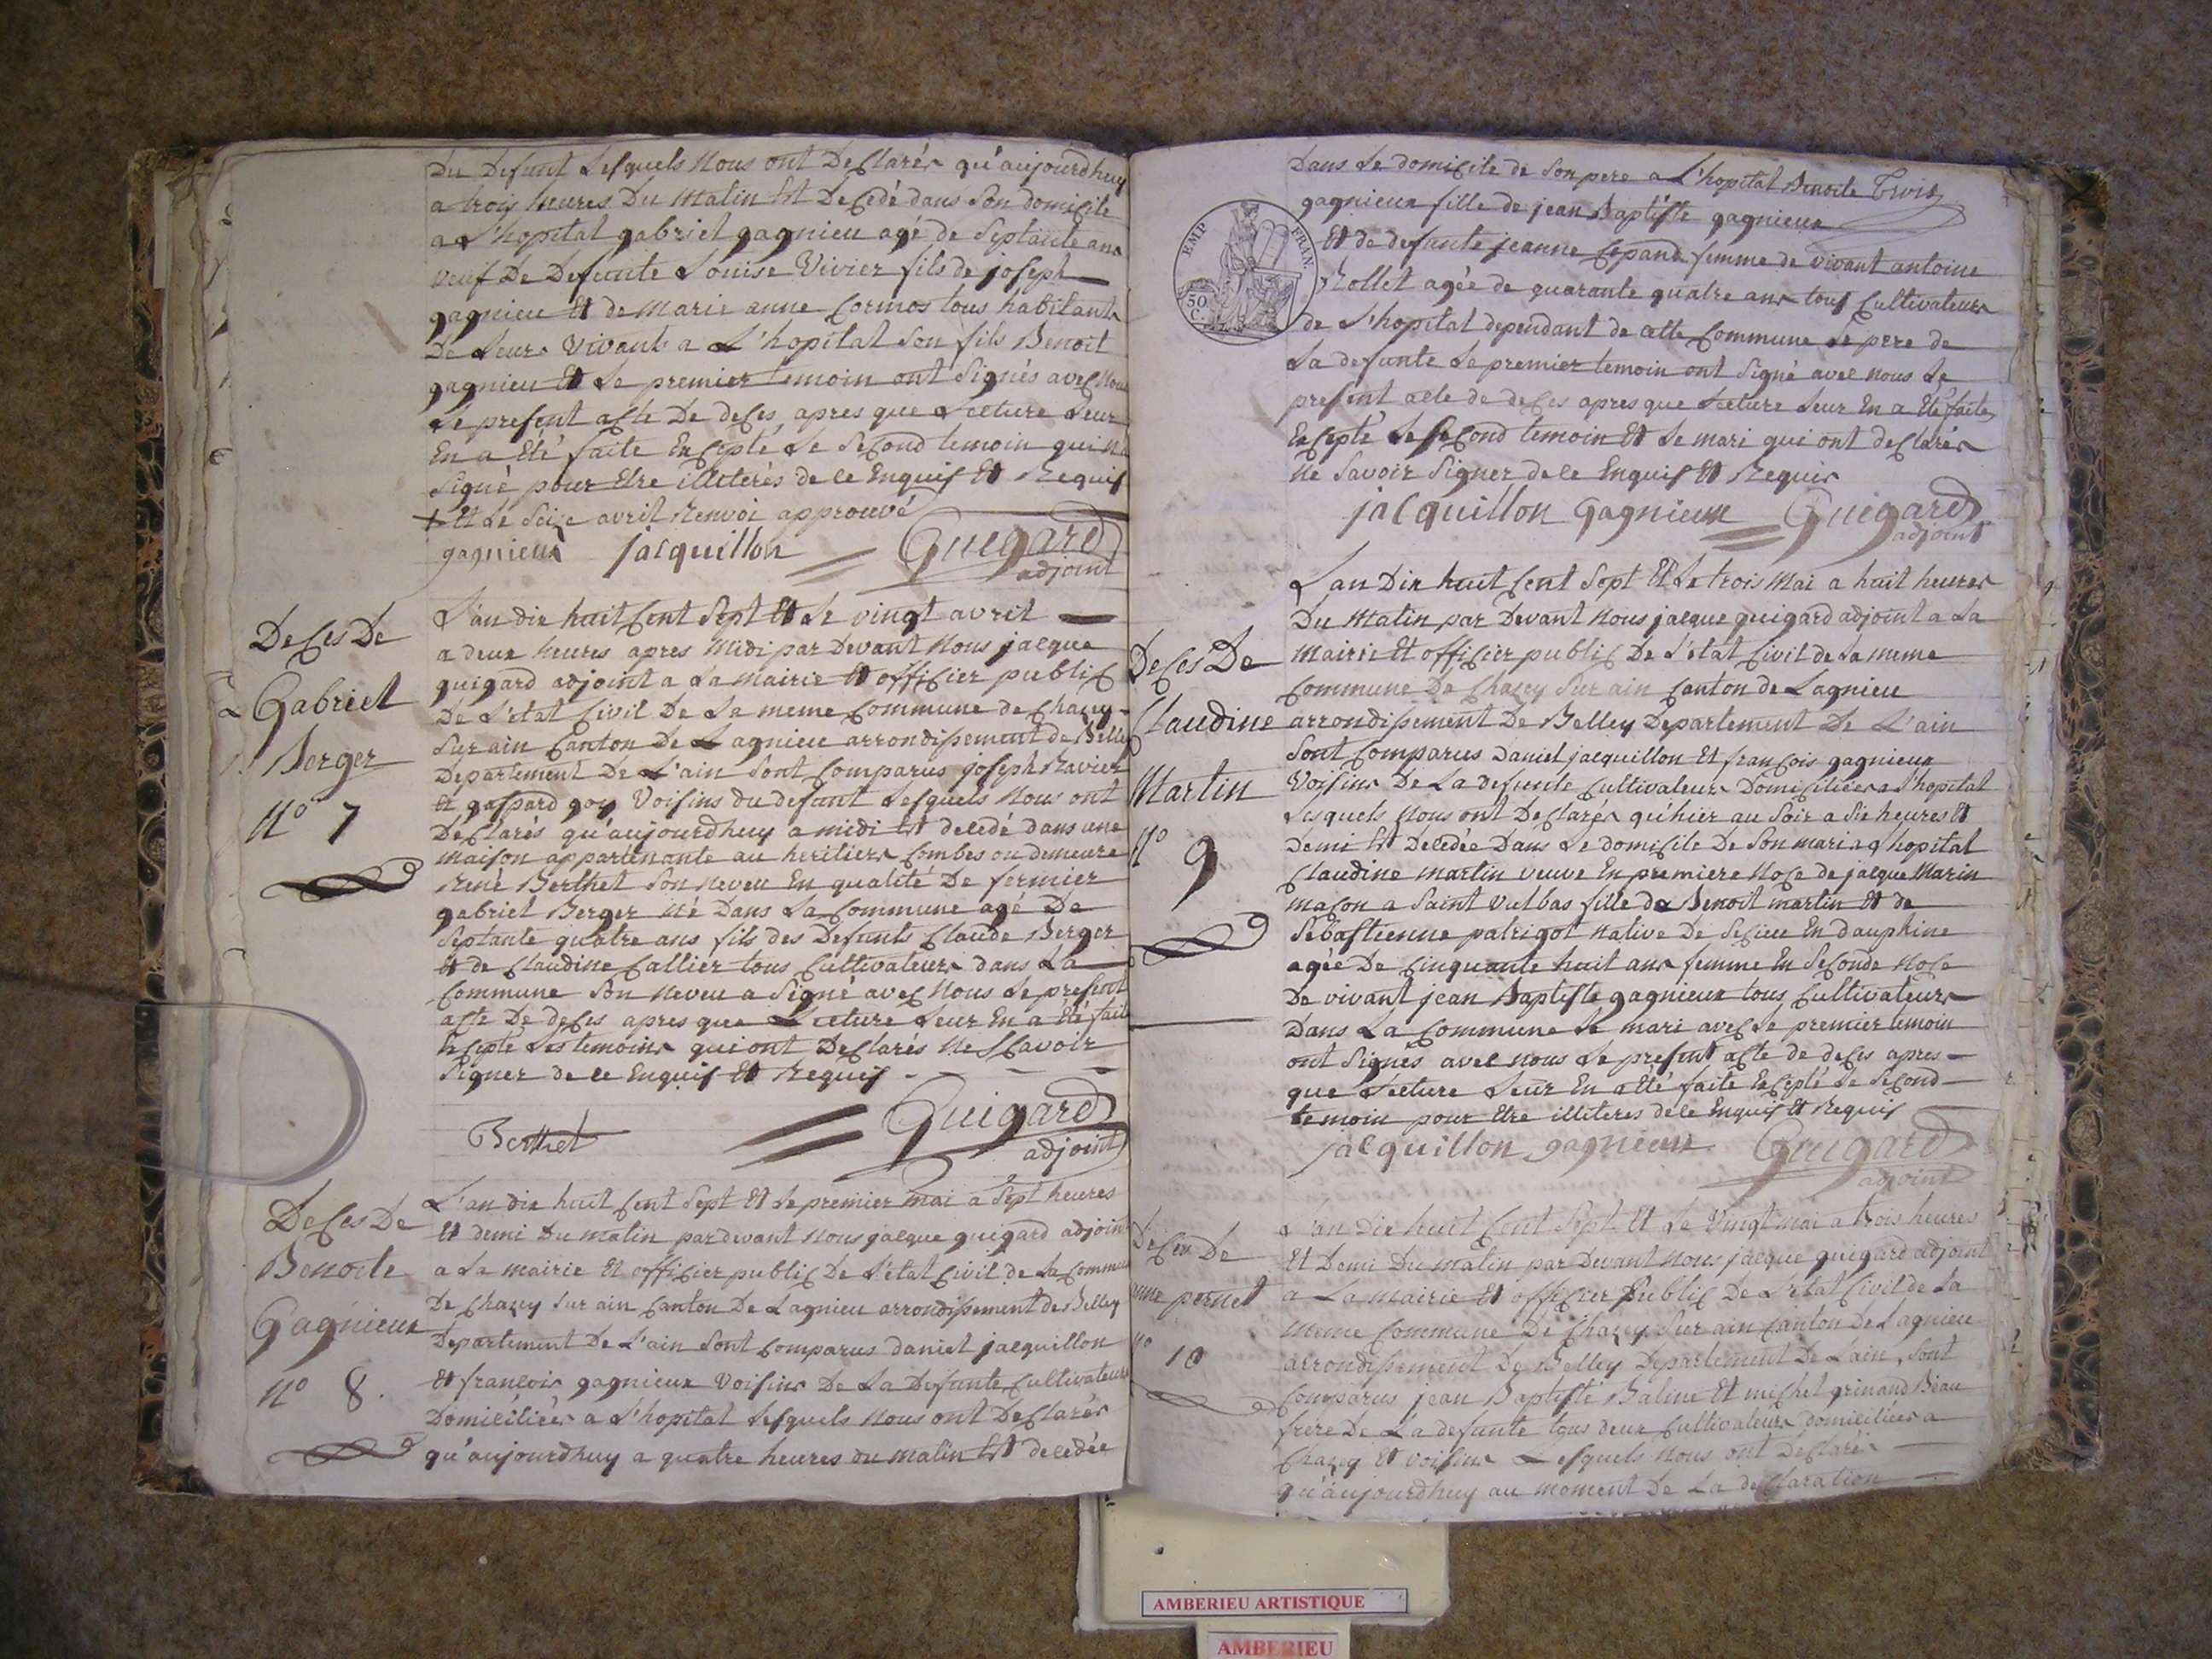 Du Defunt Lesquels Nous ont Declarés qu'aujourdhuy
a trois heures Du Matin Est Decedé dans Son domicile
a L'hopital gabriel gagnieu agé de Septante ans
veuf De Defunte Louise Vivier fils de joseph
gagnieu Et de Marie anne Cormos tous habitants
De Leurs Vivants a L'hopital Son fils Benoit
gagnieu Et Le premier temoin ont Signés avec Nous
Le present acte De deces apres que Lecture Leur
En a Eté faite Excepté Le Second temoin qui Na
Signé pour Etre illiterés de ce Enquis Et Requis
+ Et Le Seize avril Renvoi approuvé
gagnieux jacquillon Guigard
adjoint
Deces De
Gabriel
Berger
N° 7
L'an dix huit Cent Sept Et Le vingt avril
a deux heures apres Midi par Devant Nous jacque
guigard adjoint a La Mairie Et officier public
De L'etat Civil De La meme Commune de Chazey
Sur ain Canton De Lagnieu arrondissement de Belley
Departement De L'ain Sont Comparus joseph Ravier
Et gaspard goy Voisins du defunt Lesquels Nous ont
Declarés qu'aujourdhuy a midi Est decedé dans une
maison appartenante au heritiers Combes ou demeure
René Berthet Son neveu En qualité De fermier
gabriel Berger Né Dans La Commune agé De
Septante quatre ans fils des Defunts Claude Berger
Et de Claudine Callier tous Cultivateurs dans La
Commune Son neveu a Signé avec Nous Le present
acte De deces apres que Lecture Leur En a Eté faite
Excepté Les temoins qui ont Declarés Ne Scavoir
Signer de ce Enquis Et Requis
Berthet Guigard
adjoint
Deces De
Benoite
Gagnieux
N° 8.
L'an dix huit Cent Sept Et Le premier mai a Sept heures
Et demi Du matin par devant Nous jacque guigard adjoint
a La mairie Et officier public De L'etat Civil de La Commune
De Chazey Sur ain Canton De Lagnieu arrondissement de Belley
Departement De L'ain Sont Comparus daniel jacquillon
Et francois gagnieux Voisins De La Defunte Cultivateurs
Domiciliés a L'hopital Lesquels Nous ont Declarés
qu'aujourdhuy a quatre heures du matin Est decedée
EMP FRAN.
50
C.
Dans Le domicile de Son pere a L'hopital Benoite
gagnieux fille de jean Baptiste gagnieux
Et de defunte jeanne femme de vivant antoine
Rollet agée de quarante quatre ans tous Cultivateurs
de L'hopital dependant de cette Commune Le pere de
La defunte Le premier temoin ont Signé avec nous Le
present acte de deces apres que Lecture Leur En a Eté faite
Excepté Le Second temoin Et Le mari qui ont declarés
Ne Savoir Signer de ce Enquis Et Requis
jacquillon Gagnieux Guigard
adjoint
Deces De
Claudine
Martin
N° 9
L an Dix huit Cent Sept Et Le trois Mai a huit heures
Du Matin par Devant Nous jacque guigard adjoint a La
Mairie Et officier public De L'etat Civil de La meme
Commune De Chazey Sur ain Canton de Lagnieu
arrondissement De Belley Departement De L'ain
Sont Comparus Daniel jacquillon Et francois gagnieux
Voisins De La defunte Cultivateurs Domiciliés a L'hopital
Lesquels Nous ont Declarés qu'hier au Soir a Six heures Et
demi Est Decedée Dans Le domicile De Son mari a L'hopital
Claudine Martin veuve En premiere Noce de jacque Marin
maçon a Saint Vulbas fille de Benoit martin Et de
Sebastienne patrigot Native De Secieu En dauphine
agée De Cinquante huit ans femme En Seconde Noce
De vivant jean Baptiste gagnieux tous Cultivateurs
Dans La Commune Le mari avec Le premier temoin
ont Signés avec nous Le present acte de deces apres
que Lecture Leur En a Eté faite Excepté Le Second
temoin pour Etre illiteres de ce Enquis Et Requis
jacquillon gagnieux Guigard
adjoint
Deces De
pernet
N° 10
L an Dix huit Cent Sept Et Le Vingt mai a trois heures
Et Demi Du matin par Devant Nous jacque guigard adjoint
a La mairie Et officier Public De L'etat Civil de La
meme Commune De Chazey Sur ain Canton De Lagnieu
arrondissement De Belley Departement De L'ain, Sont
Comparus jean Baptiste Baline Et michel grinand Beau
frere De La defunte tous deux Cultivateurs domiciliés a
Chazey Et voisins Lesquels Nous ont Declarés
qu'aujourdhuy au moment De La declaration
AMBERIEU ARTISTIQUE
AMBERIEU